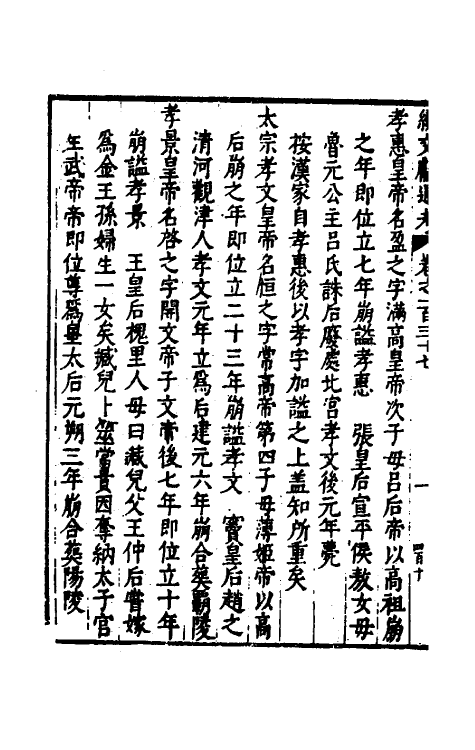 續文獻通考 卷之一百三十七 一 四百十
孝惠皇帝名盈之字滿高皇帝次子母呂后帝以高祖崩
之年即位立七年崩謚孝惠 張皇后宣平侯敖女母
魯元公主呂氏誅后廢處北宮孝文後元年薨
按漢家自孝惠後以孝字加謚之上盖知所重矣
太宗孝文皇帝名恒之字常高帝第四子母薄姬帝以高
后崩之年即位立二十三年崩謚孝文 竇皇后趙之
清河觀津人孝文元年立為后建元六年崩合葬霸陵
孝景皇帝名啓之字開文帝子文帝後七年即位立十年
崩謚孝景 王皇后槐里人母曰藏兒父王仲后嘗嫁
為金王孫婦生一女矣臧兒卜筮當貴因奪納太子宮
至武帝帝即位尊為皇太后元朔三年崩合葬陽陵